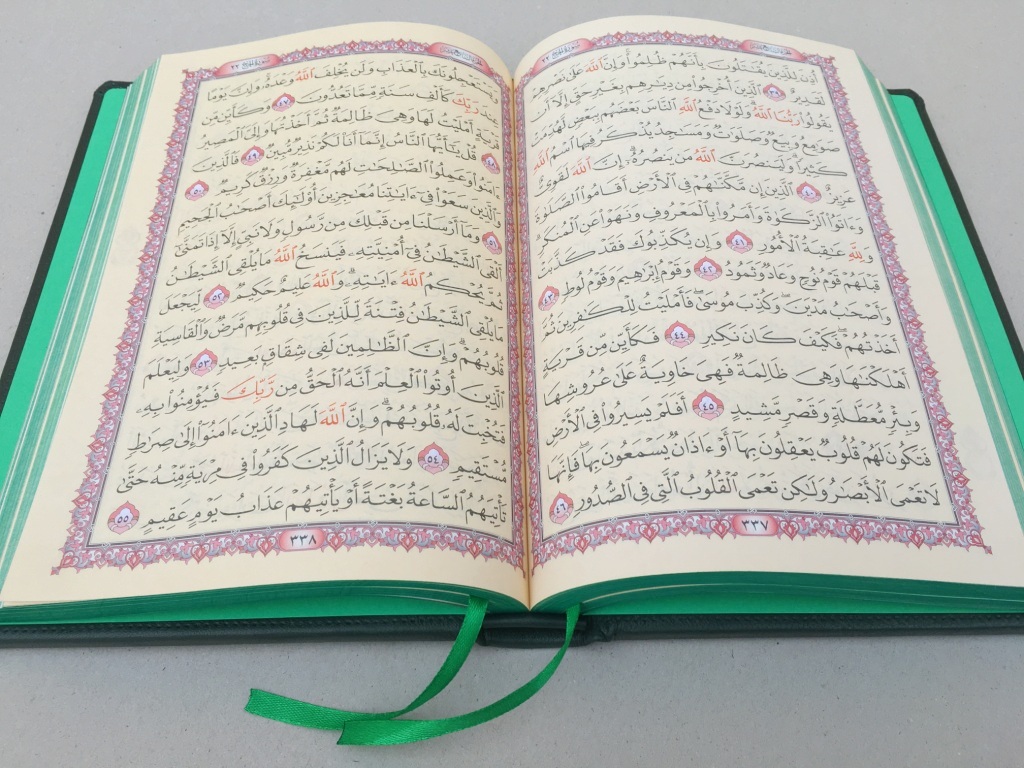 الجزء السابع عشر سورة الحج ٢٢
أُذِنَ لِلَّذِينَ يُقَٰتَلُونَ بِأَنَّهُمْ ظُلِمُوا۟ وَإِنَّ ٱللَّهَ عَلَىٰ نَصْرِهِمْ
لَقَدِيرٌ ٣٩ ٱلَّذِينَ أُخْرِجُوا۟ مِن دِيَٰرِهِم بِغَيْرِ حَقٍّ إِلَّآ أَن
يَقُولُوا۟ رَبُّنَا ٱللَّهُ وَلَوْلَا دَفْعُ ٱللَّهِ ٱلنَّاسَ بَعْضَهُم بِبَعْضٍ لَّهُدِّمَتْ
صَوَٰمِعُ وَبِيَعٌ وَصَلَوَٰتٌ وَمَسَٰجِدُ يُذْكَرُ فِيهَا ٱسْمُ ٱللَّهِ
كَثِيرًا وَلَيَنصُرَنَّ ٱللَّهُ مَن يَنصُرُهُۥٓ إِنَّ ٱللَّهَ لَقَوِىٌّ
عَزِيزٌ ٤٠ ٱلَّذِينَ إِن مَّكَّنَّٰهُمْ فِى ٱلْأَرْضِ أَقَامُوا۟ ٱلصَّلَوٰةَ
وَءَاتَوُا۟ ٱلزَّكَوٰةَ وَأَمَرُوا۟ بِٱلْمَعْرُوفِ وَنَهَوْا۟ عَنِ ٱلْمُنكَرِ
وَلِلَّهِ عَٰقِبَةُ ٱلْأُمُورِ ٤١ وَإِن يُكَذِّبُوكَ فَقَدْ كَذَّبَتْ
قَبْلَهُمْ قَوْمُ نُوحٍ وَعَادٌ وَثَمُودُ ٤٢ وَقَوْمُ إِبْرَٰهِيمَ وَقَوْمُ لُوطٍ ٤٣
وَأَصْحَٰبُ مَدْيَنَ وَكُذِّبَ مُوسَىٰ فَأَمْلَيْتُ لِلْكَٰفِرِينَ ثُمَّ
أَخَذْتُهُمْ فَكَيْفَ كَانَ نَكِيرِ ٤٤ فَكَأَيِّن مِّن قَرْيَةٍ
أَهْلَكْنَٰهَا وَهِىَ ظَالِمَةٌ فَهِىَ خَاوِيَةٌ عَلَىٰ عُرُوشِهَا
وَبِئْرٍ مُّعَطَّلَةٍ وَقَصْرٍ مَّشِيدٍ ٤٥ أَفَلَمْ يَسِيرُوا۟ فِى ٱلْأَرْضِ
فَتَكُونَ لَهُمْ قُلُوبٌ يَعْقِلُونَ بِهَآ أَوْ ءَاذَانٌ يَسْمَعُونَ بِهَا فَإِنَّهَا
لَا تَعْمَى ٱلْأَبْصَٰرُ وَلَٰكِن تَعْمَى ٱلْقُلُوبُ ٱلَّتِى فِى ٱلصُّدُورِ ٤٦
٣٣٧
الجزء السابع عشر سورة الحج ٢٢
وَيَسْتَعْجِلُونَكَ بِٱلْعَذَابِ وَلَن يُخْلِفَ ٱللَّهُ وَعْدَهُۥ وَإِنَّ يَوْمًا
عِندَ رَبِّكَ كَأَلْفِ سَنَةٍ مِّمَّا تَعُدُّونَ ٤٧ وَكَأَيِّن مِّن
قَرْيَةٍ أَمْلَيْتُ لَهَا وَهِىَ ظَالِمَةٌ ثُمَّ أَخَذْتُهَا وَإِلَىَّ ٱلْمَصِيرُ
٤٨ قُلْ يَٰٓأَيُّهَا ٱلنَّاسُ إِنَّمَآ أَنَا۠ لَكُمْ نَذِيرٌ مُّبِينٌ ٤٩ فَٱلَّذِينَ
ءَامَنُوا۟ وَعَمِلُوا۟ ٱلصَّٰلِحَٰتِ لَهُم مَّغْفِرَةٌ وَرِزْقٌ كَرِيمٌ ٥٠
وَٱلَّذِينَ سَعَوْا۟ فِىٓ ءَايَٰتِنَا مُعَٰجِزِينَ أُو۟لَٰٓئِكَ أَصْحَٰبُ ٱلْجَحِيمِ
٥١ وَمَآ أَرْسَلْنَا مِن قَبْلِكَ مِن رَّسُولٍ وَلَا نَبِىٍّ إِلَّآ إِذَا تَمَنَّىٰٓ
أَلْقَى ٱلشَّيْطَٰنُ فِىٓ أُمْنِيَّتِهِۦ فَيَنسَخُ ٱللَّهُ مَا يُلْقِى ٱلشَّيْطَٰنُ
ثُمَّ يُحْكِمُ ٱللَّهُ ءَايَٰتِهِۦ وَٱللَّهُ عَلِيمٌ حَكِيمٌ ٥٢ لِّيَجْعَلَ
مَا يُلْقِى ٱلشَّيْطَٰنُ فِتْنَةً لِّلَّذِينَ فِى قُلُوبِهِم مَّرَضٌ وَٱلْقَاسِيَةِ
قُلُوبُهُمْ وَإِنَّ ٱلظَّٰلِمِينَ لَفِى شِقَاقٍۭ بَعِيدٍ ٥٣ وَلِيَعْلَمَ
ٱلَّذِينَ أُوتُوا۟ ٱلْعِلْمَ أَنَّهُ ٱلْحَقُّ مِن رَّبِّكَ فَيُؤْمِنُوا۟ بِهِۦ
فَتُخْبِتَ لَهُۥ قُلُوبُهُمْ وَإِنَّ ٱللَّهَ لَهَادِ ٱلَّذِينَ ءَامَنُوٓا۟ إِلَىٰ صِرَٰطٍ
مُّسْتَقِيمٍ ٥٤ وَلَا يَزَالُ ٱلَّذِينَ كَفَرُوا۟ فِى مِرْيَةٍ مِّنْهُ حَتَّىٰ
تَأْتِيَهُمُ ٱلسَّاعَةُ بَغْتَةً أَوْ يَأْتِيَهُمْ عَذَابُ يَوْمٍ عَقِيمٍ ٥٥
٣٣٨